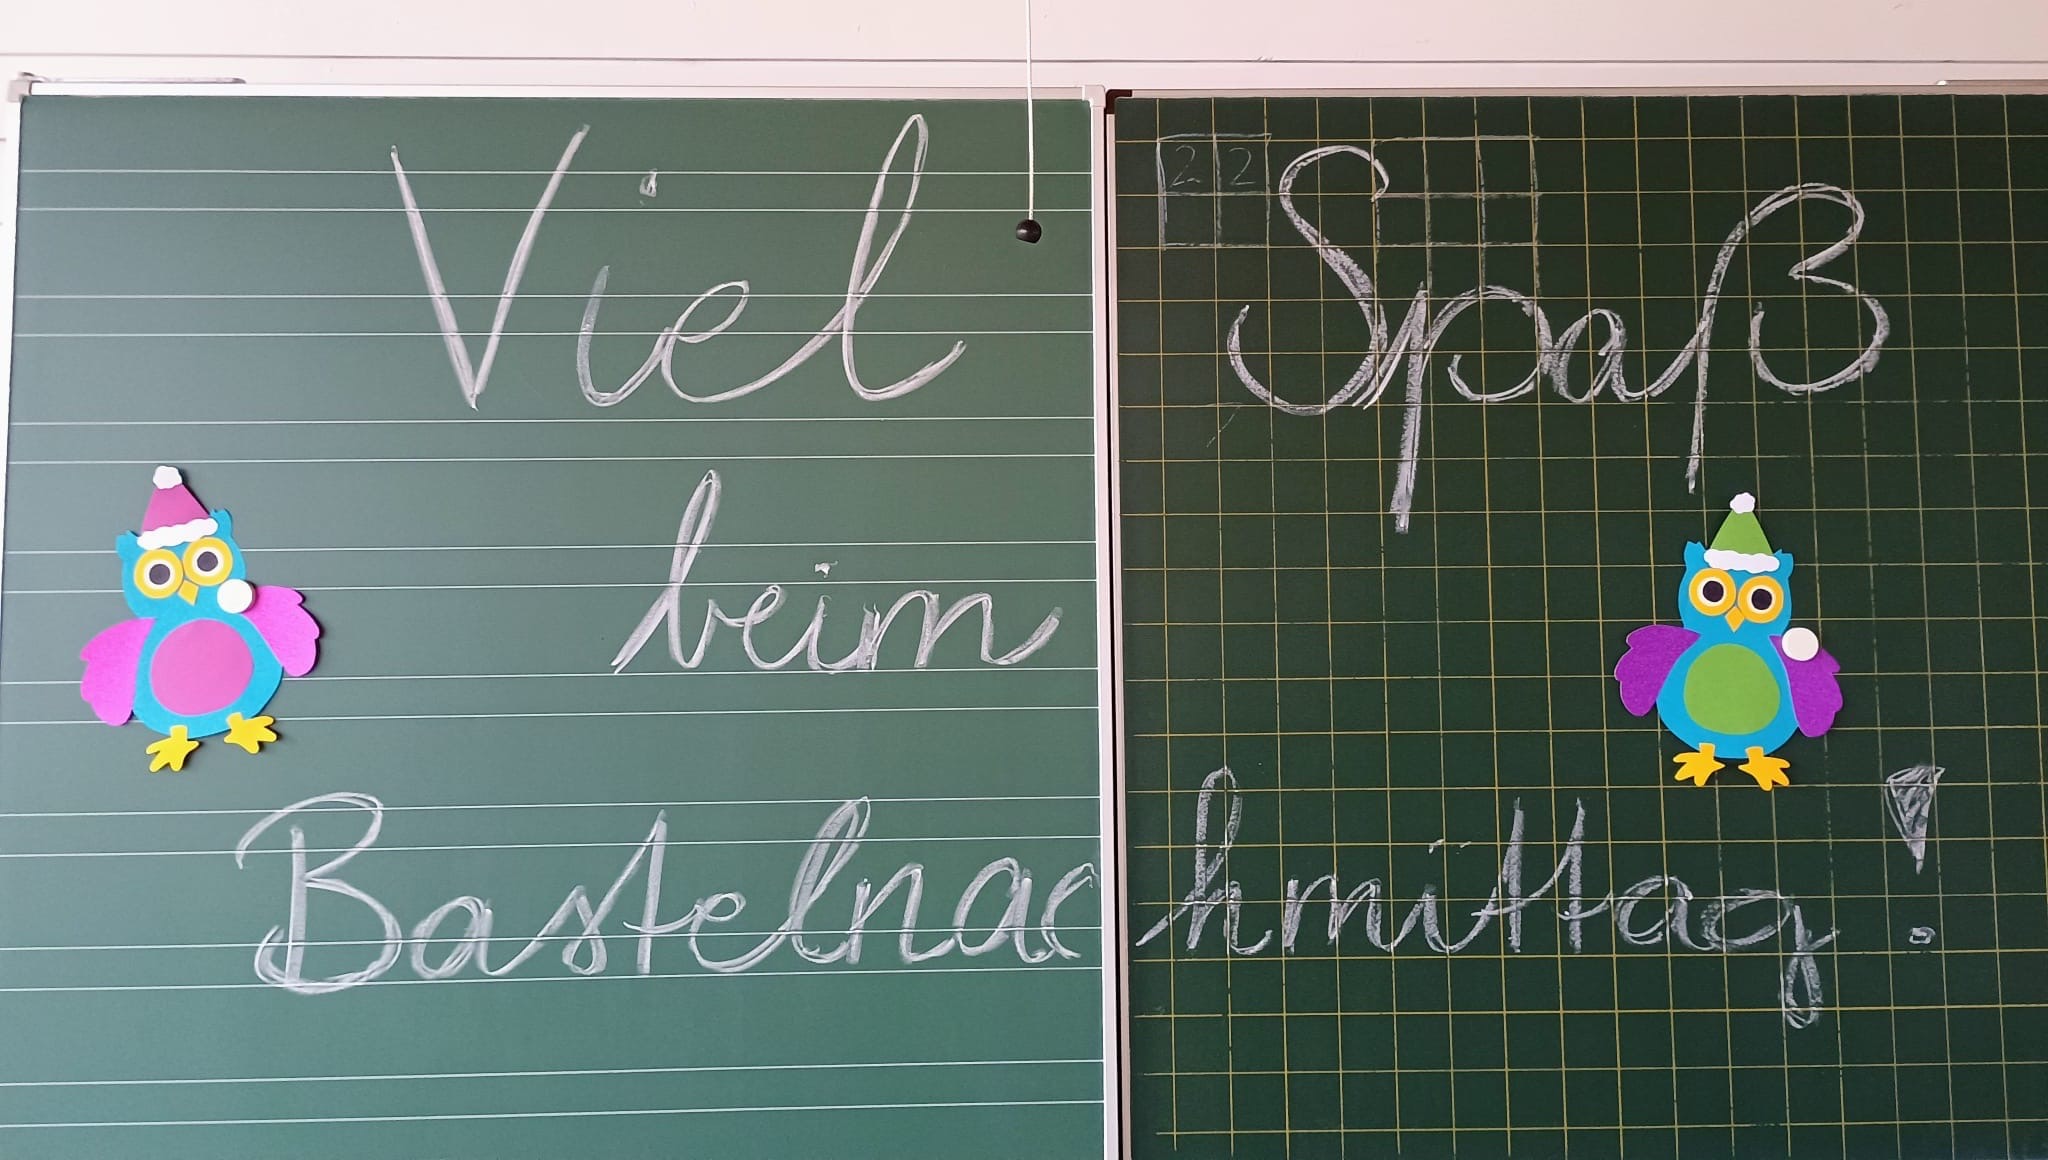 22
Viel Spaß
beim
Bastelnachmittag!